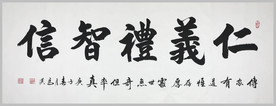 仁義禮智信
傳家有道惟存厚處世無奇但率真